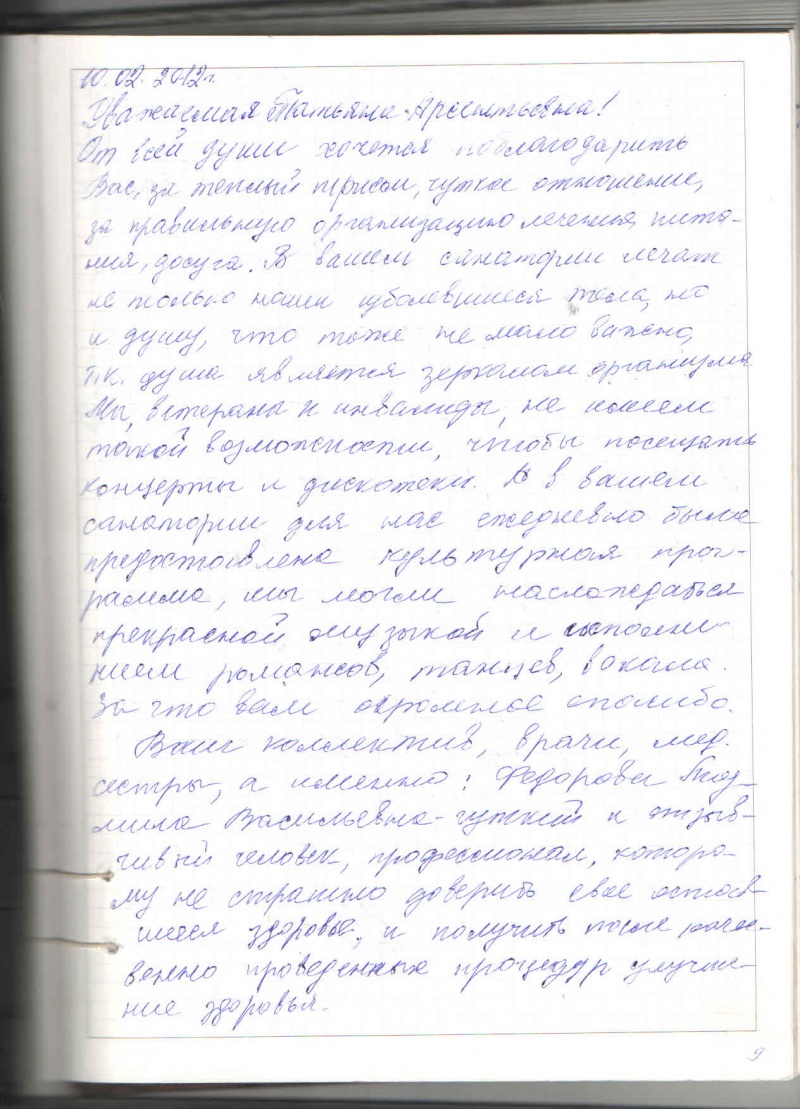 10.02.2012г.
Уважаемая Татьяна Арсентьевна!
От всей души хочется поблагодарить
Вас, за теплый прием, чуткое отношение,
за правильную организацию лечения, пита-
ния, досуга. В вашем санатории лечат
не только наши уболевшиеся тела, но
и душу, что тоже не мало важно,
т.к. душа является зеркалом организма.
Мы, ветераны и инвалиды, не имеем
такой возможности, чтобы посещать
концерты и дискотеки. А в вашем
санатории для нас ежедневно была
предоставлена культурная прог-
рамма, мы могли наслаждаться
прекрасной музыкой и исполне-
нием романсов, танцев, вокала.
За что вам огромное спасибо.
Ваш коллектив, врачи, мед.
сестры, а именно: Федорова Люд-
мила Васильевна - чуткий и отзыв-
чивый человек, профессионал, которо-
му не страшно доверить свое остав-
шееся здоровье, и получить после качес-
венно проведенных процедур улучше-
ние здоровья.
9